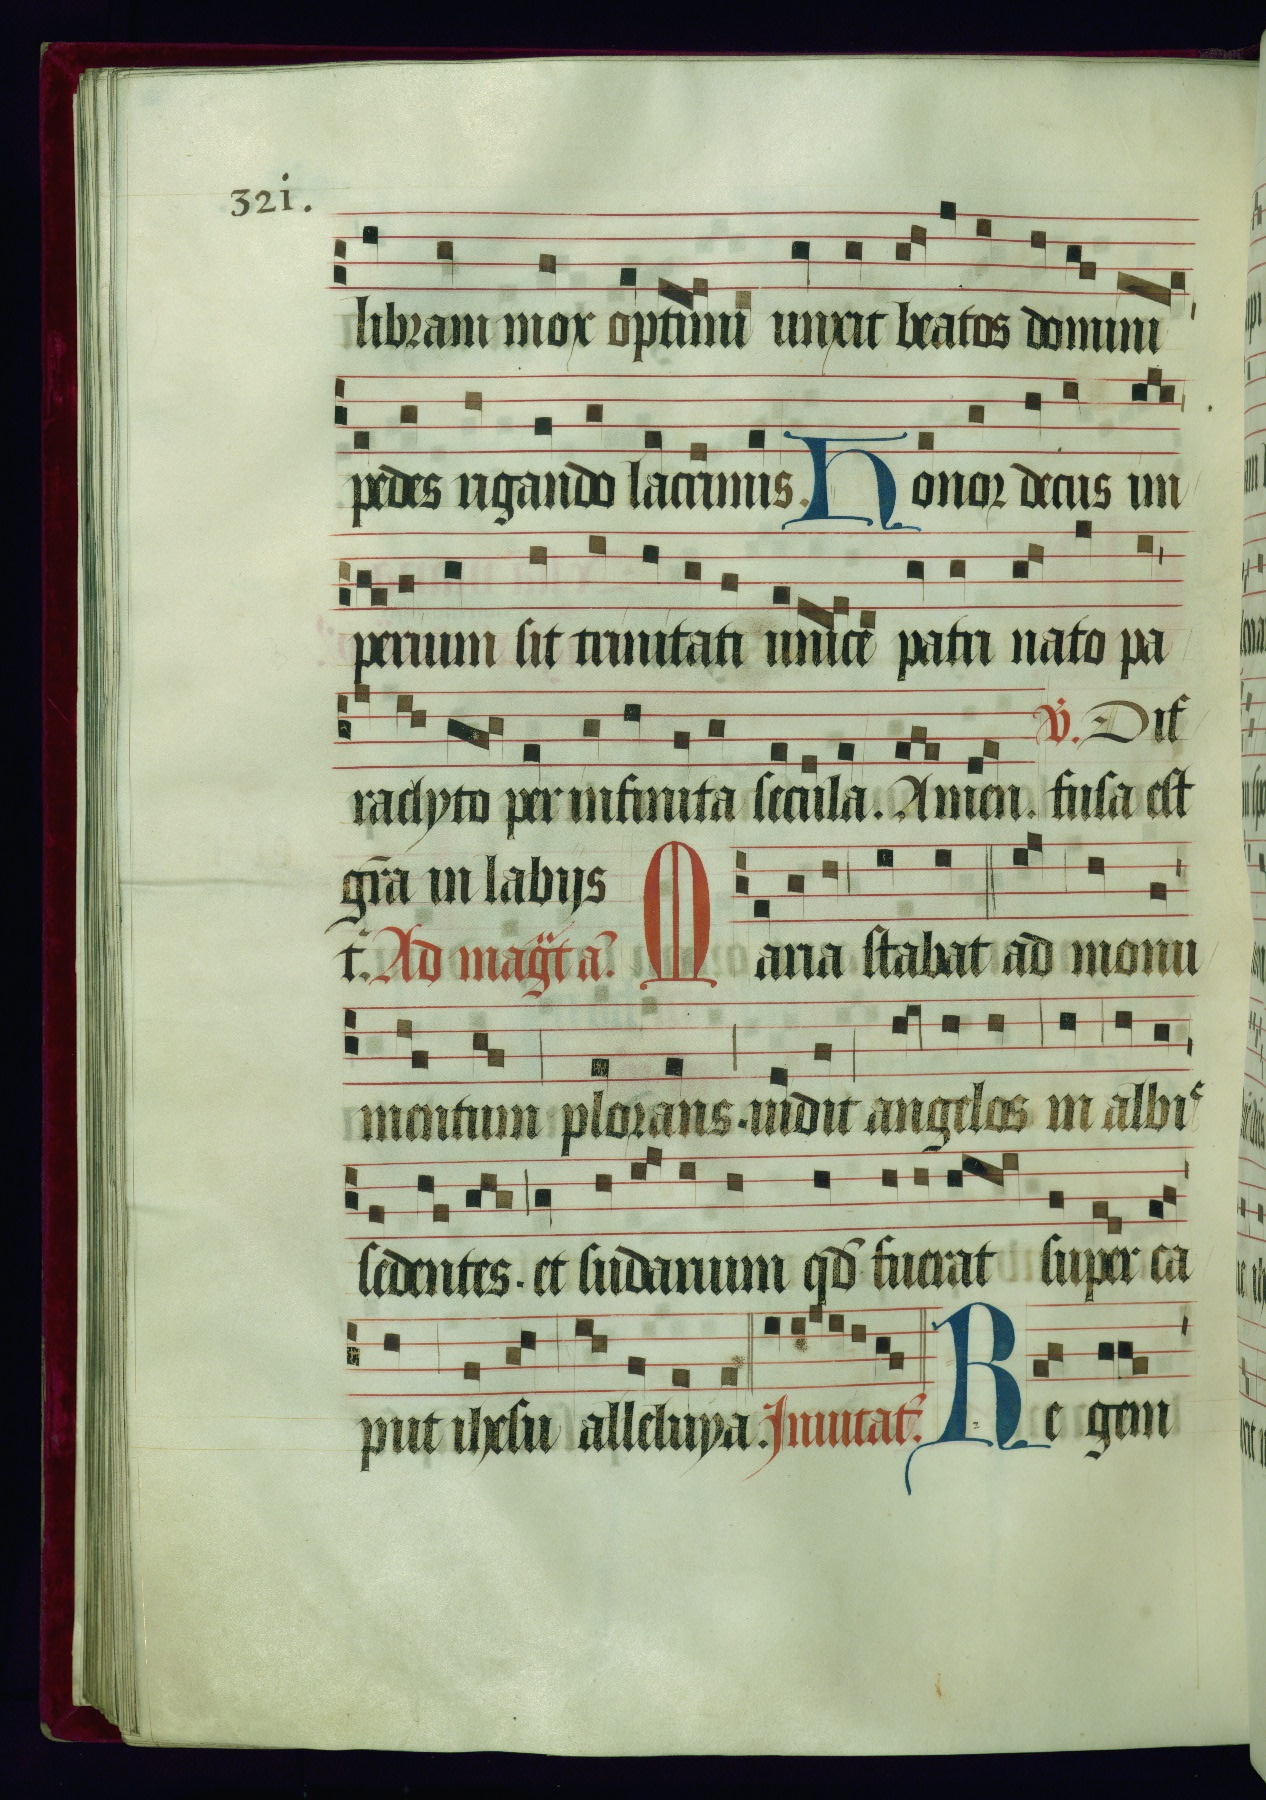 32i.
libram mox optimi unxit beatos domini
pedes rigando lacrimis. Honor decus im
perium sit trinitati unice patri nato pa
℣. Dif
raclyto per infinita secula. Amen. fusa est
gr̄a in labijs
t. Ad mag̈t a? Maria stabat ad monu
mentum plorans. uidit angelos in albis
sedentes. et sudarium qd̄ fuerat super ca
put ihesu alleluya. Inuitat? Regem